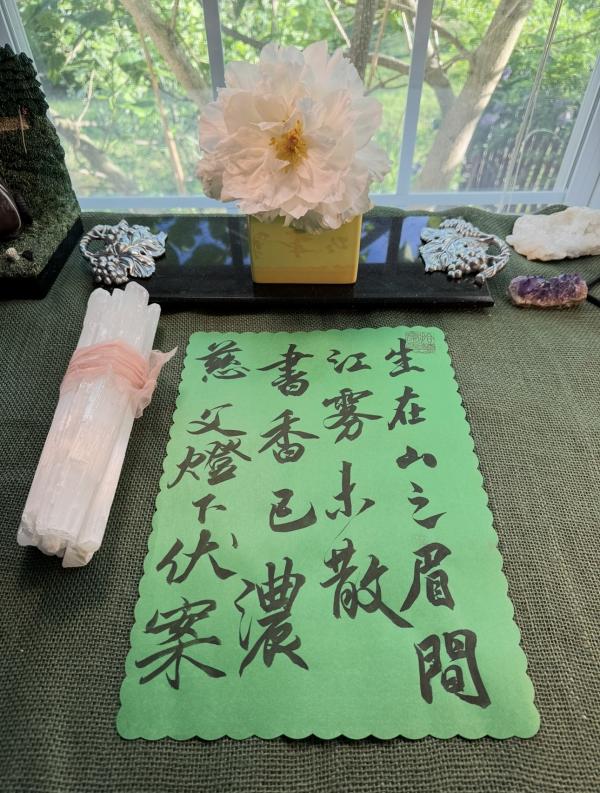 生在山之眉間
江霧未散
書香已濃
慈父燈下伏案